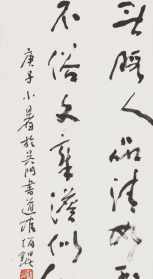 無瑕人品清如
不俗文章淡似
庚子小暑於吴門書道